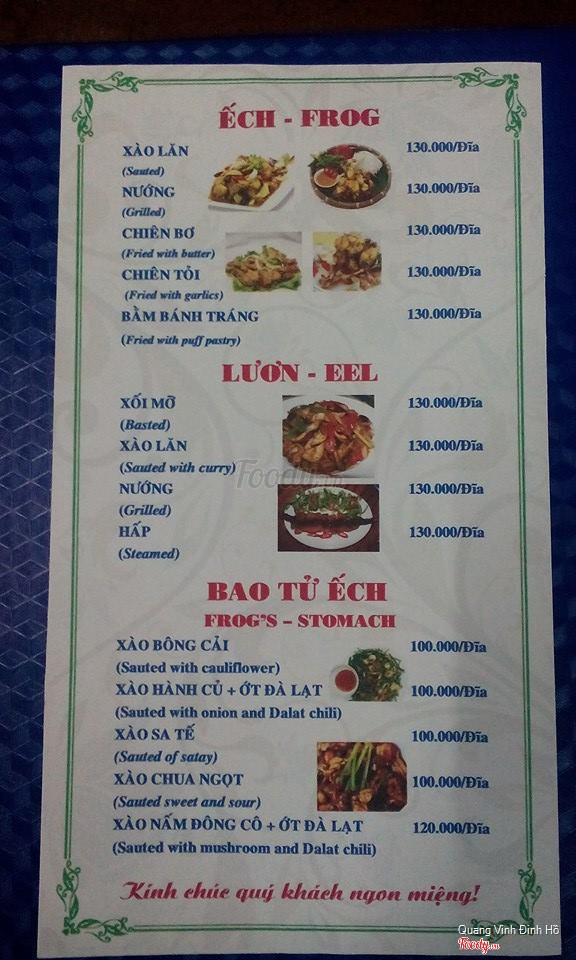 ẾCH - FROG
XÀO LĂN 130.000/Đĩa
(Sauted)
NƯỚNG 130.000/Đĩa
(Grilled)
CHIÊN BƠ 130.000/Đĩa
(Fried with butter)
CHIÊN TỎI 130.000/Đĩa
(Fried with garlics)
BẰM BÁNH TRÁNG 130.000/Đĩa
(Fried with puff pastry)
LƯƠN - EEL
XỐI MỠ 130.000/Đĩa
(Basted)
XÀO LĂN 130.000/Đĩa
(Sauted with curry)
Foody.vn
NƯỚNG 130.000/Đĩa
(Grilled)
HẤP 130.000/Đĩa
(Steamed)
BAO TỬ ẾCH
FROG'S - STOMACH
XÀO BÔNG CẢI 100.000/Đĩa
(Sauted with cauliflower)
XÀO HÀNH CỦ + ỚT ĐÀ LẠT 100.000/Đĩa
(Sauted with onion and Dalat chili)
XÀO SA TẾ 100.000/Đĩa
(Sauted of satay)
XÀO CHUA NGỌT 100.000/Đĩa
(Sauted sweet and sour)
XÀO NẤM ĐÔNG CÔ + ỚT ĐÀ LẠT 120.000/Đĩa
(Sauted with mushroom and Dalat chili)
Kính chúc quý khách ngon miệng!
Quang Vinh Đinh Hồ
Foody.vn